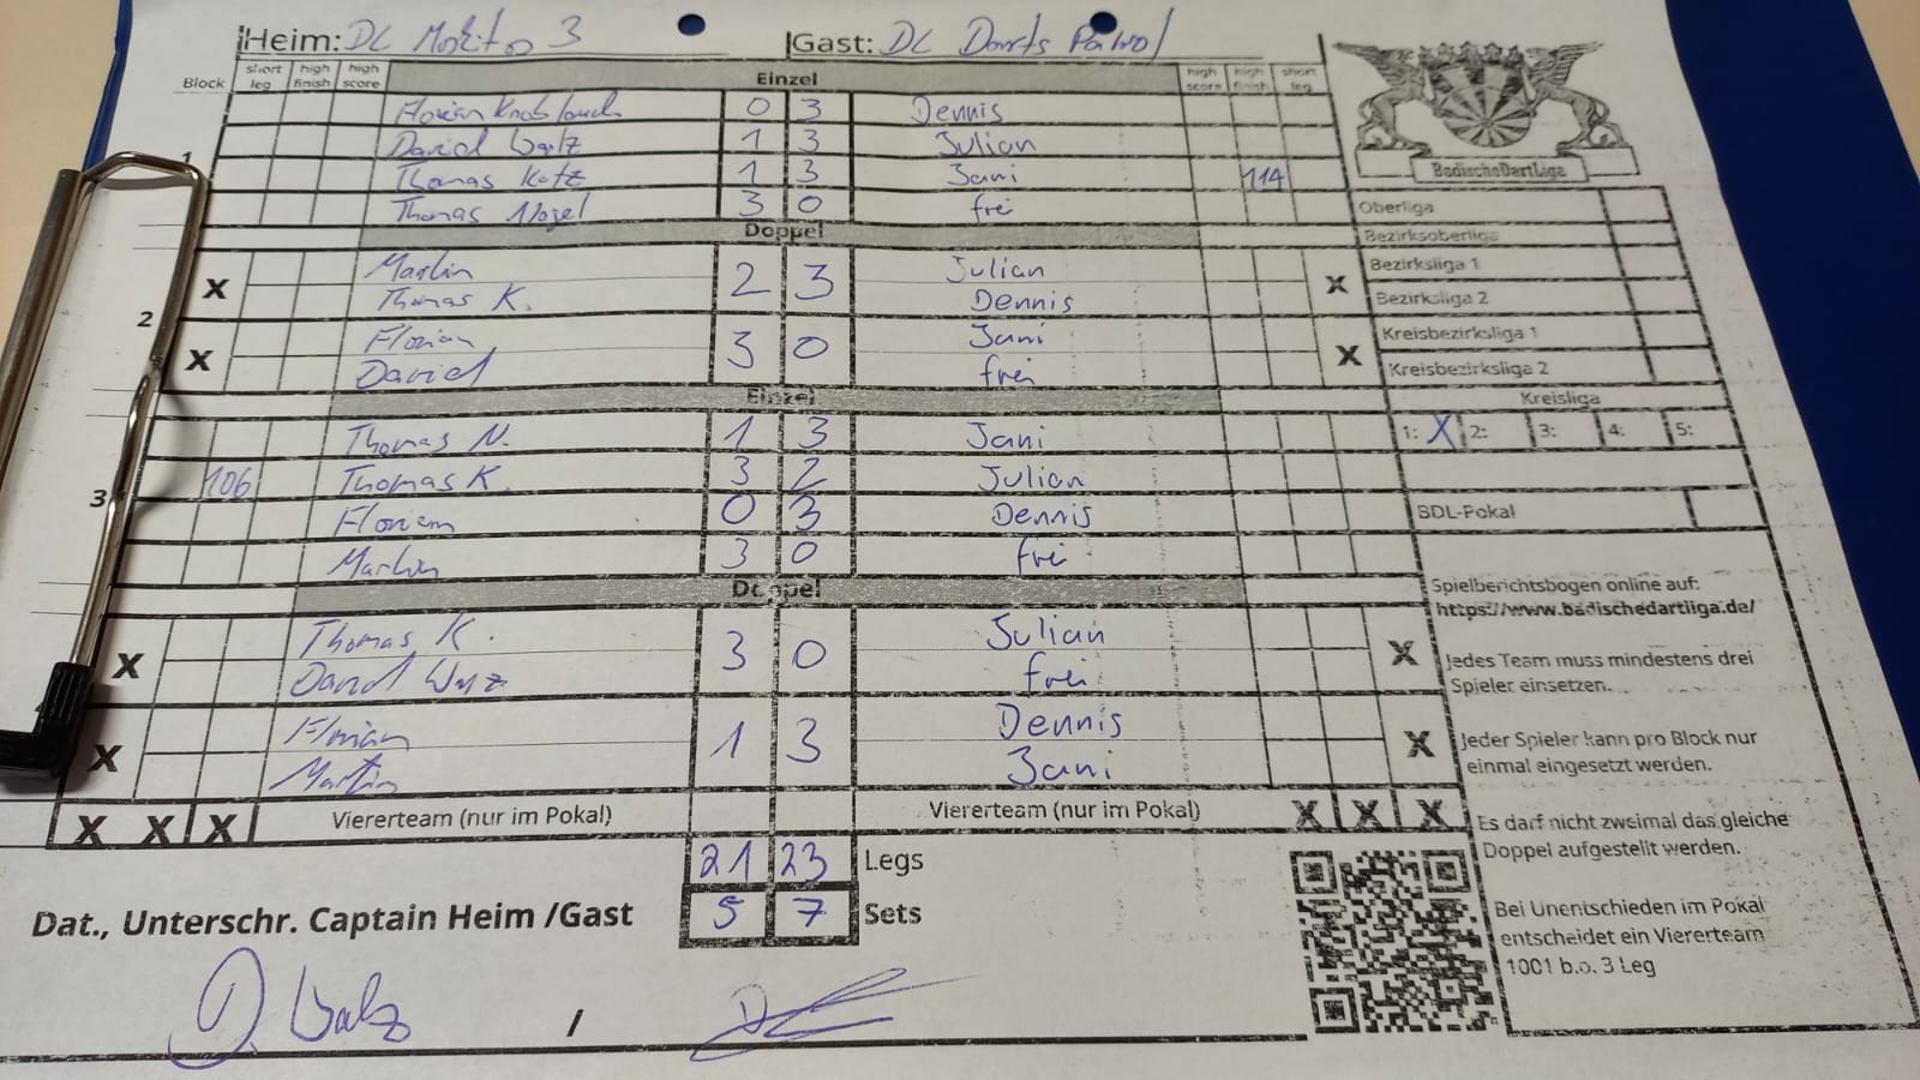 Heim: DL Mokitos 3 Gast: DL Darts Patrol
Block short leg high finish high score Einzel high score high finish short leg
Florian Knoblauch 0 3 Dennis
1 David Walz 1 3 Julian
Thomas Kotz 1 3 Jani 114
Thomas Nagel 3 0 frei
BadischeDartLiga
Oberliga
Doppel
Bezirksoberliga
Martin Julian
X 2 3 X
Thomas K. Dennis
Bezirksliga 1
Bezirksliga 2
2
Florian Jani
X 3 0 X
David frei
Kreisbezirksliga 1
Kreisbezirksliga 2
Einzel
Kreisliga
1: X 2: 3: 4: 5:
Thomas N. 1 3 Jani
106 Thomas K 3 2 Julian
3
Florian 0 3 Dennis
BDL-Pokal
Martin 3 0 frei
Doppel
Spielberichtsbogen online auf:
https://www.badischedartliga.de/
Thomas K. Julian
X 3 0 X
David Walz frei
Jedes Team muss mindestens drei
Spieler einsetzen.
Florian Dennis
X 1 3 X
Martin Jani
Jeder Spieler kann pro Block nur
einmal eingesetzt werden.
X X X Viererteam (nur im Pokal) Viererteam (nur im Pokal) X X X
Es darf nicht zweimal das gleiche
Doppel aufgestellt werden.
21 23 Legs
Dat., Unterschr. Captain Heim /Gast 5 7 Sets
Bei Unentschieden im Pokal
entscheidet ein Viererteam
1001 b.o. 3 Leg
D. Walz /